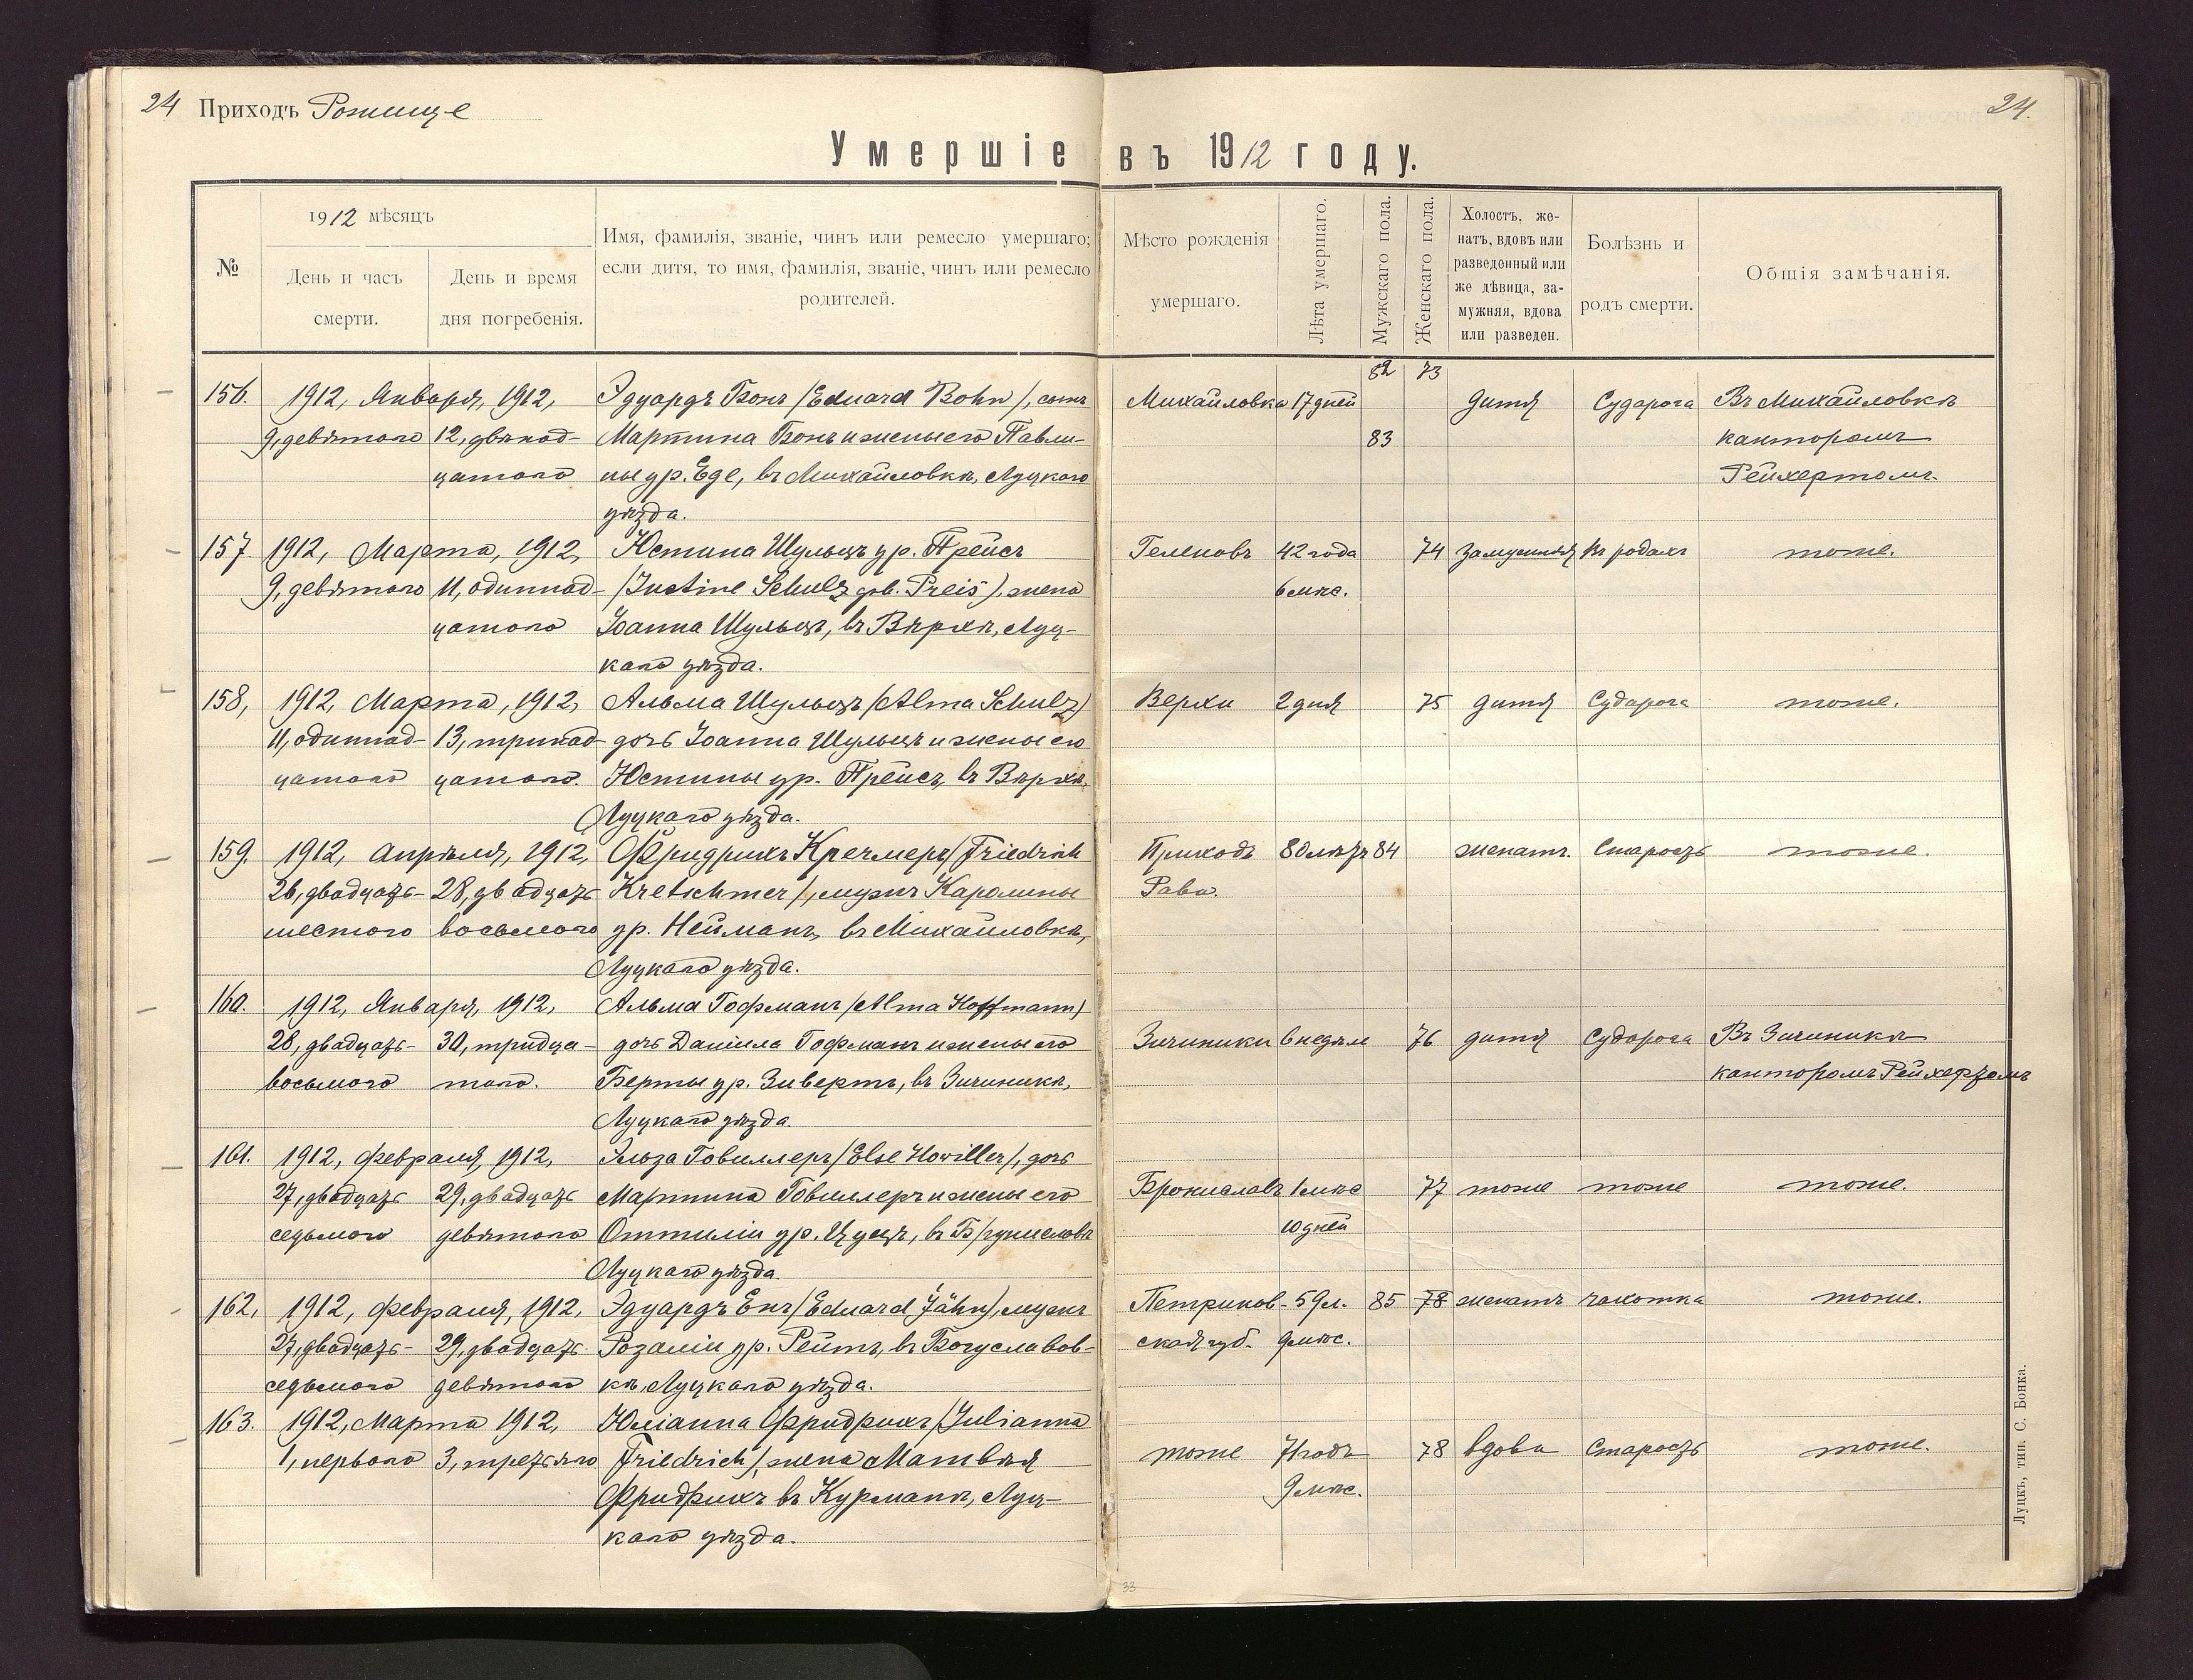 24 Приходъ Рожище
24.
Умершіе въ 1912 году.
№
1912 мѣсяцъ
День и часъ
смерти.
День и время
дня погребенія.
Имя, фамилія, званіе, чинъ или ремесло умершаго;
если дитя, то имя, фамилія, званіе, чинъ или ремесло
родителей.
Мѣсто рожденія
умершаго.
Лѣта умершаго.
Мужскаго пола.
Женскаго пола.
Холостъ, же-
натъ, вдовъ или
разведенный или
же дѣвица, за-
мужняя, вдова
или разведен.
Болѣзнь и
родъ смерти.
Общія замѣчанія.
82 73
156. 1912, Января, 1912, Эдуардъ Бонъ (Eduard Bohn), сынъ Михайловка 17 дней дитя Судорога Въ Михайловкѣ
9, девятаго 12, двѣнад- Мартина Бонъ и жены его Павли- 83 канторомъ
цатаго ны ур. Еде, въ Михайловкѣ, Луцкаго Рейхертомъ.
уѣзда.
157. 1912, Марта, 1912, Юстина Шульцъ ур. Прейсъ Геленовъ 42 года 74 замужняя въ родахъ тоже.
9, девятаго 11, одиннад- (Justine Schulz geb. Preis), жена 6 мѣс.
цатаго Іоанна Шульцъ, въ Вѣрхѣ, Луц-
каго уѣзда.
158, 1912, Марта, 1912, Альма Шульцъ (Alma Schulz) Верхи 2 дня 75 дитя Судорога тоже.
11, одиннад- 13, тринад- дочь Іоанна Шульцъ и жены его
цатаго цатаго. Юстины ур. Прейсъ, въ Вѣрхѣ,
Луцкаго уѣзда.
159. 1912, Апрѣля, 1912, Фридрихъ Кречмеръ (Friedrich Приходъ 80 лѣтъ 84 женатъ. Старость тоже.
26, двадцать- 28, двадцать Kretschmer), мужъ Каролины Рава.
шестого восьмого ур. Нейманъ, въ Михайловкѣ,
Луцкаго уѣзда.
160. 1912, Января, 1912, Альма Гофманъ (Alma Hoffmann)
28, двадцать- 30, тридца- дочь Даніила Гофманъ и жены его Зичиники 6 недѣль 76 дитя Судорога Въ Зичиникѣ
восьмого таго. Берты ур. Зивертъ, въ Зичиникѣ, канторомъ Рейхертомъ
Луцкаго уѣзда.
161. 1912, Февраля, 1912, Эльза Говиллеръ (Else Howiller), дочь
27, двадцать 29, двадцать Мартина Говиллеръ и жены его Брониславъ 1 мѣс 77 тоже тоже тоже.
седьмого девятаго Оттиліи ур. въ 10 дней
Луцкаго уѣзда
162, 1912, Февраля, 1912, Эдуардъ Енъ (Eduard Jähn), мужъ Петриков- 59 л. 85 78 женатъ чахотка тоже.
27, двадцать- 29, двадцать Розаліи ур. Рейтъ, въ Богуславов- ская губ. 9 мѣс.
седьмого девятаго кѣ, Луцкаго уѣзда.
163. 1912, Марта 1912, Юліанна Фридрихъ (Julianna
1, перваго 3, третьяго Friedrich), жена Матвѣя тоже 71 годъ 78 вдова Старость тоже.
Фридрихъ въ Курманѣ, Луц- 9 мѣс.
каго уѣзда.
Луцкъ, тип. С. Бонка.
33